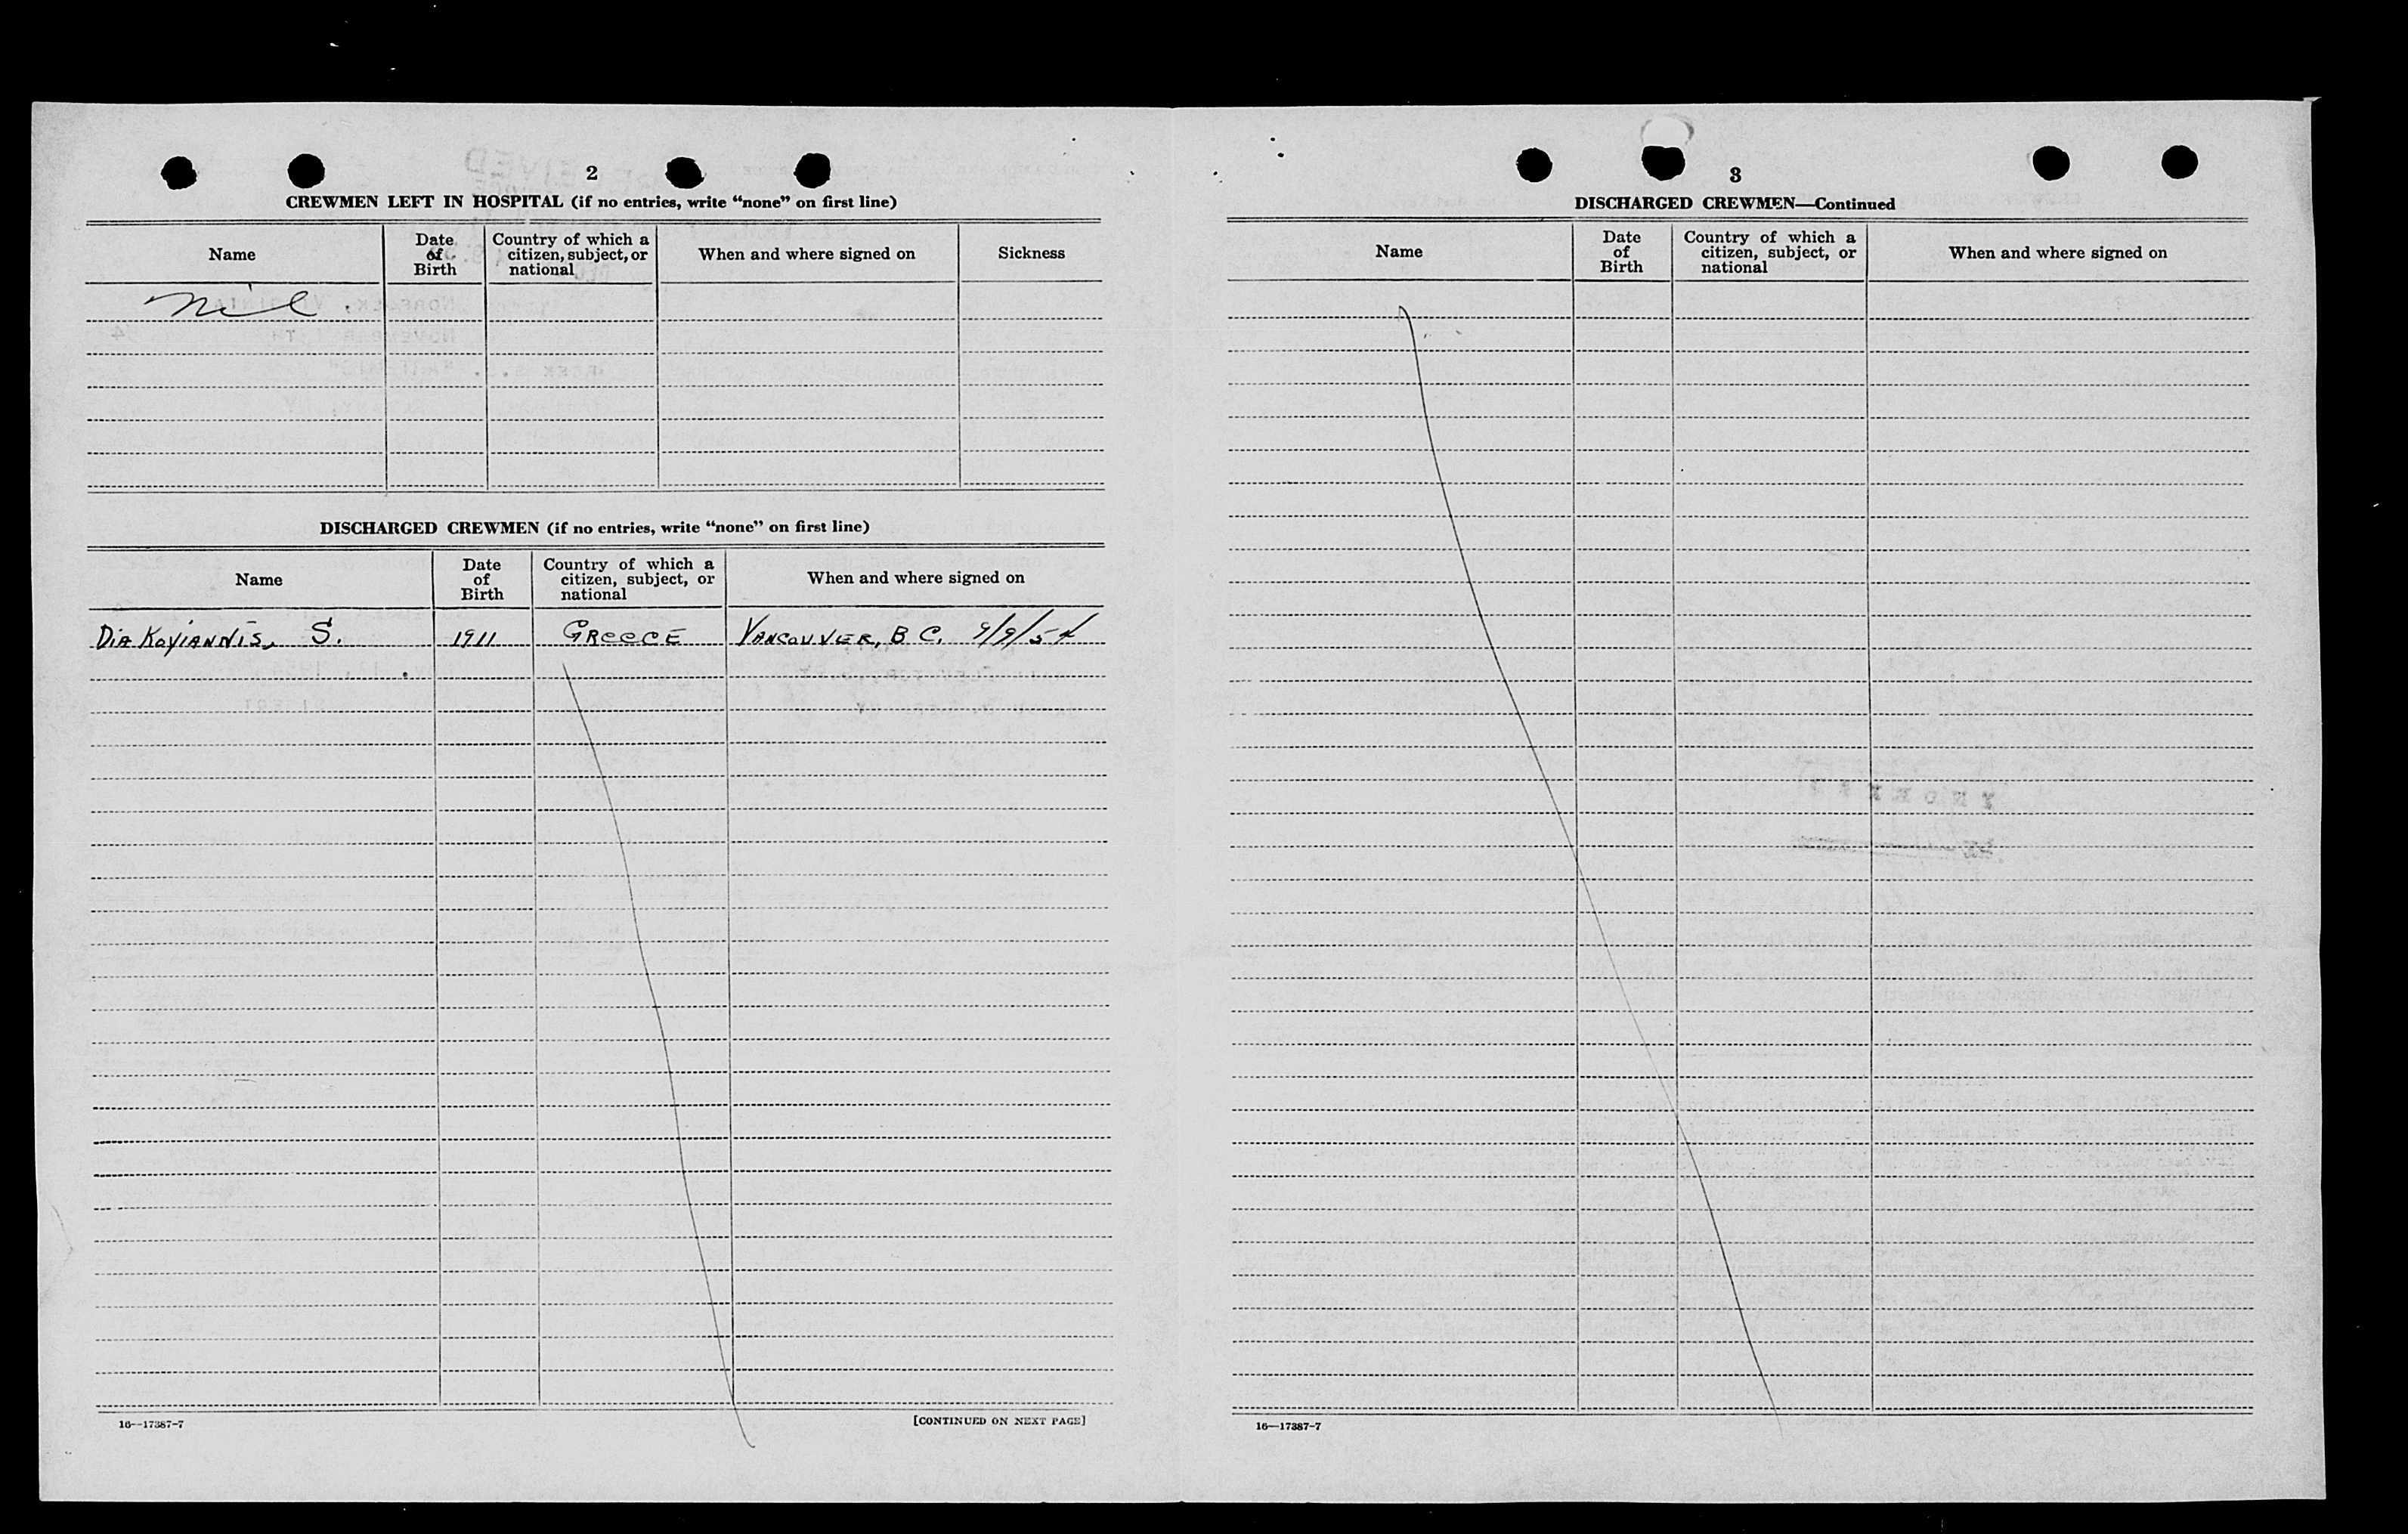 2
CREWMEN LEFT IN HOSPITAL (if no entries, write “none” on first line)
Name
Date of Birth
Country of which a citizen, subject, or national
When and where signed on
Sickness
Nil
DISCHARGED CREWMEN (if no entries, write “none” on first line)
Name
Date of Birth
Country of which a citizen, subject, or national
When and where signed on
DiaKoyiannis, S. 1911 GReeCE Vancouver, B.C. 9/9/54
16—17387-7
[CONTINUED ON NEXT PAGE]
3
DISCHARGED CREWMEN—Continued
Name
Date of Birth
Country of which a citizen, subject, or national
When and where signed on
16—17387-7